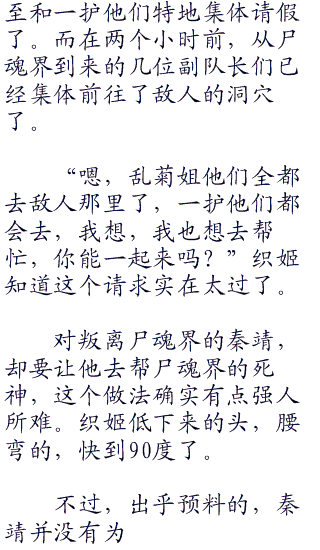 至和一护他们特地集体请假
了。而在两个小时前，从尸
魂界到来的几位副队长们已
经集体前往了敌人的洞穴
了。
“嗯，乱菊姐他们全都
去敌人那里了，一护他们都
会去，我想，我也想去帮
忙，你能一起来吗？”织姬
知道这个请求实在太过了。
对叛离尸魂界的秦靖，
却要让他去帮尸魂界的死
神，这个做法确实有点强人
所难。织姬低下来的头，腰
弯的，快到90度了。
不过，出乎预料的，秦
靖并没有为